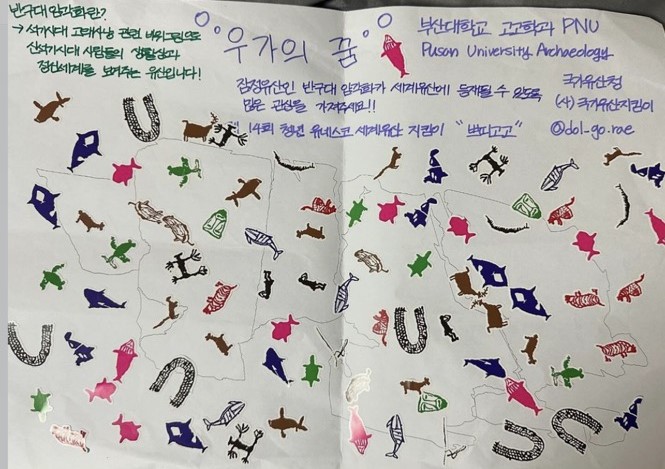 반구대 암각화란?
→ 석기시대 고래사냥 관련 바위그림으로
신석기시대 사람들의 생활상과
정신세계를 보여주는 유산입니다!
"우가의 꿈"
부산대학교 고고학과 PNU
Pusan University Archaeology
잠정유산인 반구대 암각화가 세계유산에 등재될 수 있도록
많은 관심을 가져주세요!!
14회 청년 유네스코 세계유산 지킴이 "쁘띠고고"
국가유산청
(사) 국가유산지킴이
@dol-go.rae